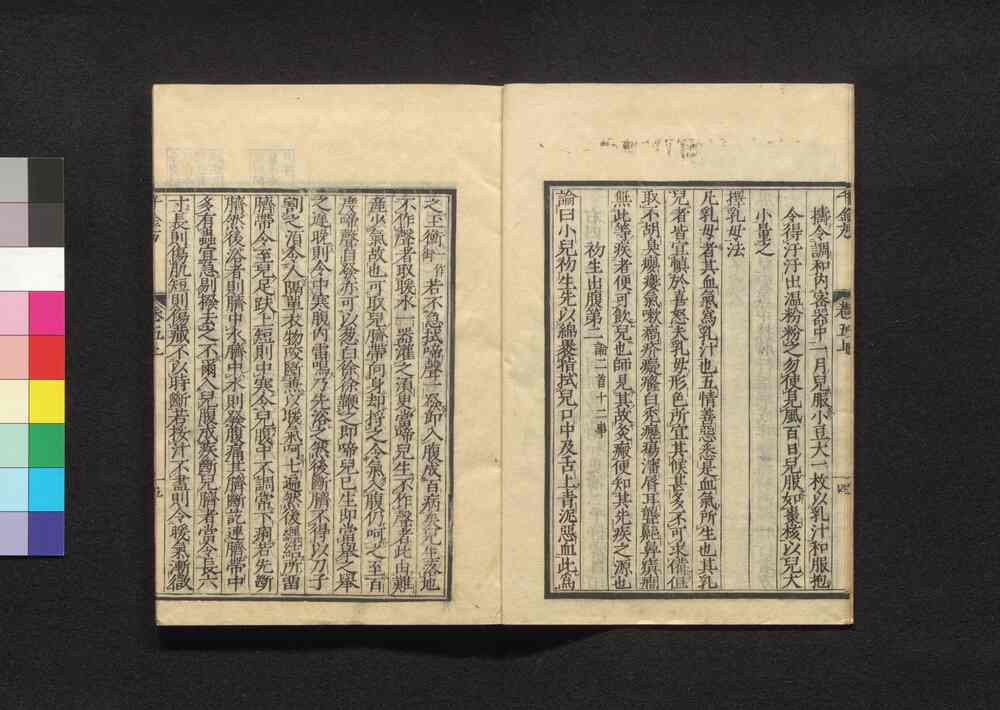 擣令調和內密器中一月兒服小豆大一枚以乳汁和服抱
令得汗汗出温粉粉之勿使見風百日兒服如棗核以兒大
小量之
擇乳母法
凡乳母者其血氣爲乳汁也五情善惡悉是血氣所生也其乳
兒者皆宜慎於喜怒夫乳母形色所宜其候甚多不可求備但
取不胡臭癭瘻氣嗽瘑疥癡癃白禿癧瘍瀋脣耳聾齆鼻癲癇
無此等疾者便可飲兒也師見其故灸瘢便知其先疾之源也
初生出腹第二 論二首 十二事
論曰小兒初生先以綿裹指拭兒口中及舌上青泥惡血此爲
之玉衡 衡一作 若不急拭啼聲一發即入腹成百病矣兒生落地
不作聲者取暖水一器灌之須臾當啼兒生不作聲者此由難
産少氣故也可取兒臍帶向身却捋之令氣入腹仍呵之至百
度啼聲自發亦可以葱白徐徐鞭之即啼兒已生即當舉之舉
之遲晚則令中寒腹內雷鳴乃先浴之然後斷臍不得以刀子
割之須令人隔單衣物咬斷兼以暖氣呵七遍然後纏結所留
臍帶令至兒足趺上短則中寒令兒腹中不調常下痢若先斷
臍然後浴者則臍中水臍中水則發腹痛其臍斷訖連臍帶中
多有蟲宜急剔撥去之不爾入兒腹成疾斷兒臍者當令長六
寸長則傷肌短則傷藏不以時斷若挼汁不盡則令暖氣漸微
千金方
卷五上
四
五